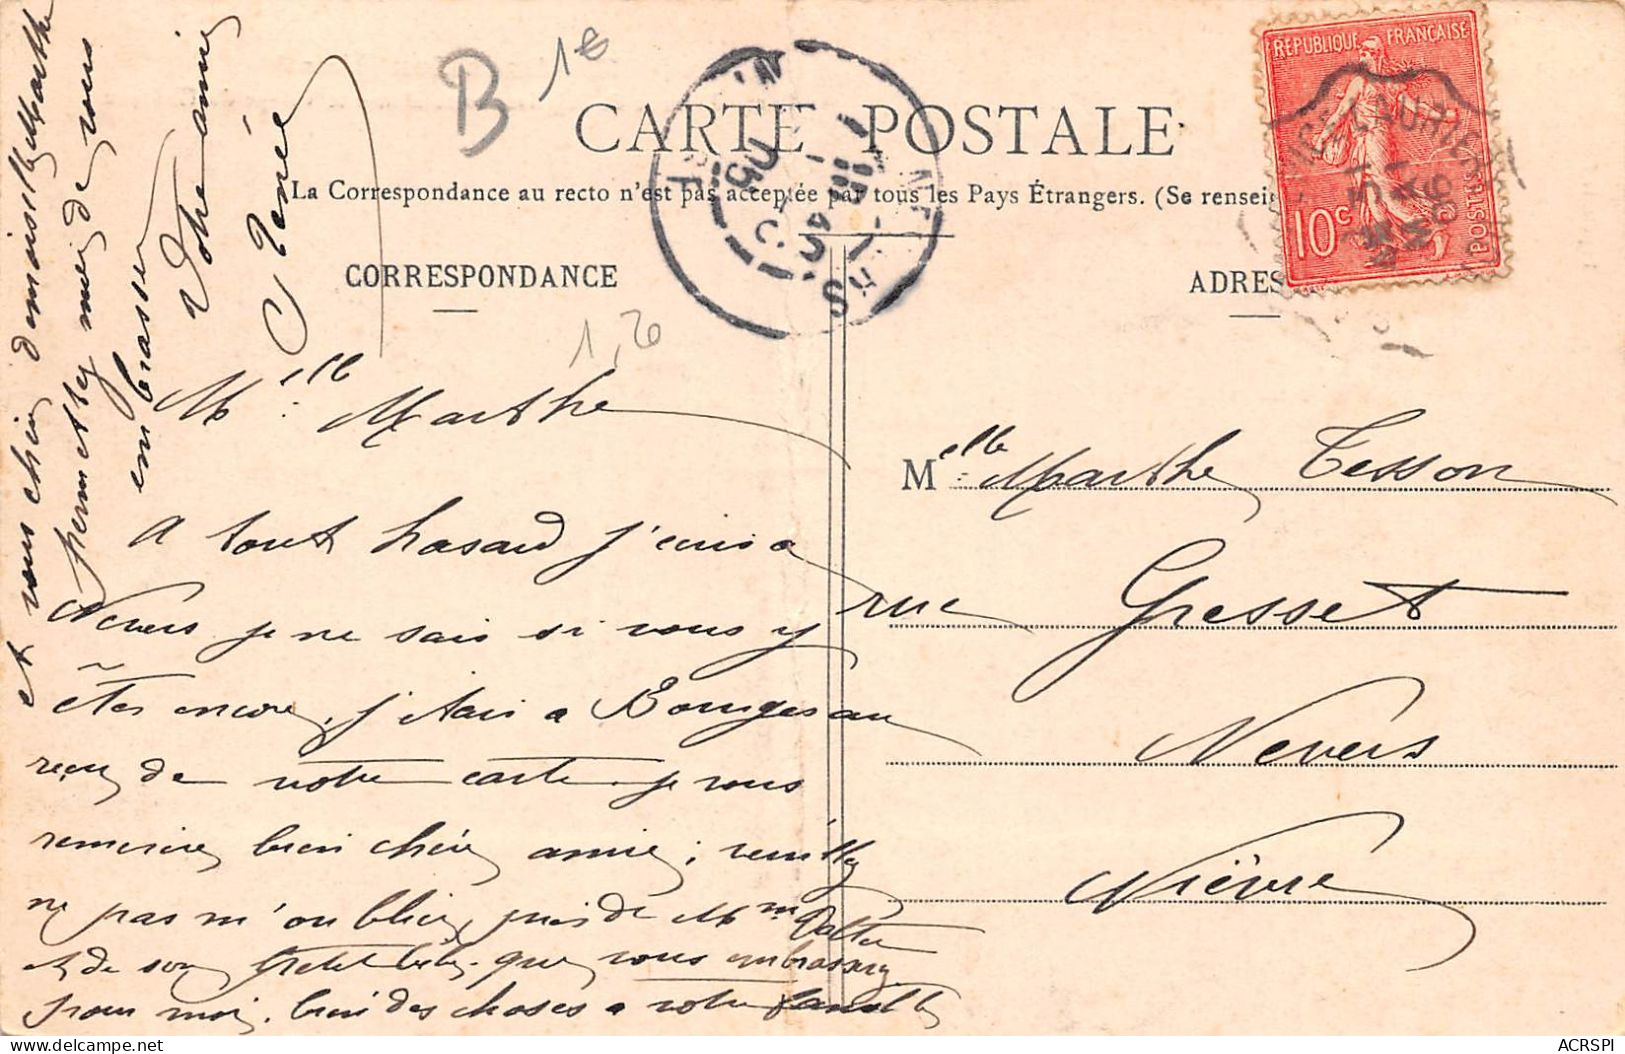 B 1€
CARTE POSTALE
La Correspondance au recto n'est pas acceptée par tous les Pays Étrangers. (Se renseig
CORRESPONDANCE
ADRES
REPUBLIQUE FRANÇAISE
10c
POSTES
1,20
Melle Marthe
A tout hasard j'écris a
Nevers je ne sais si vous y
êtes encore, j'étais a Bourges au
reçu de votre carte je vous
remercie bien chère amie; veuillez
ne pas m'oublier, près de Mme
et de son petit bébé. que vous embrasserez
pour moi. bien des choses a votre famille
et vous chère demoiselle Marthe
permettez moi de vous
embrasser
Votre amie
Renée
Melle Marthe Tesson
rue Gresset
Nevers
Nièvre
NEVERS
ACRSPI